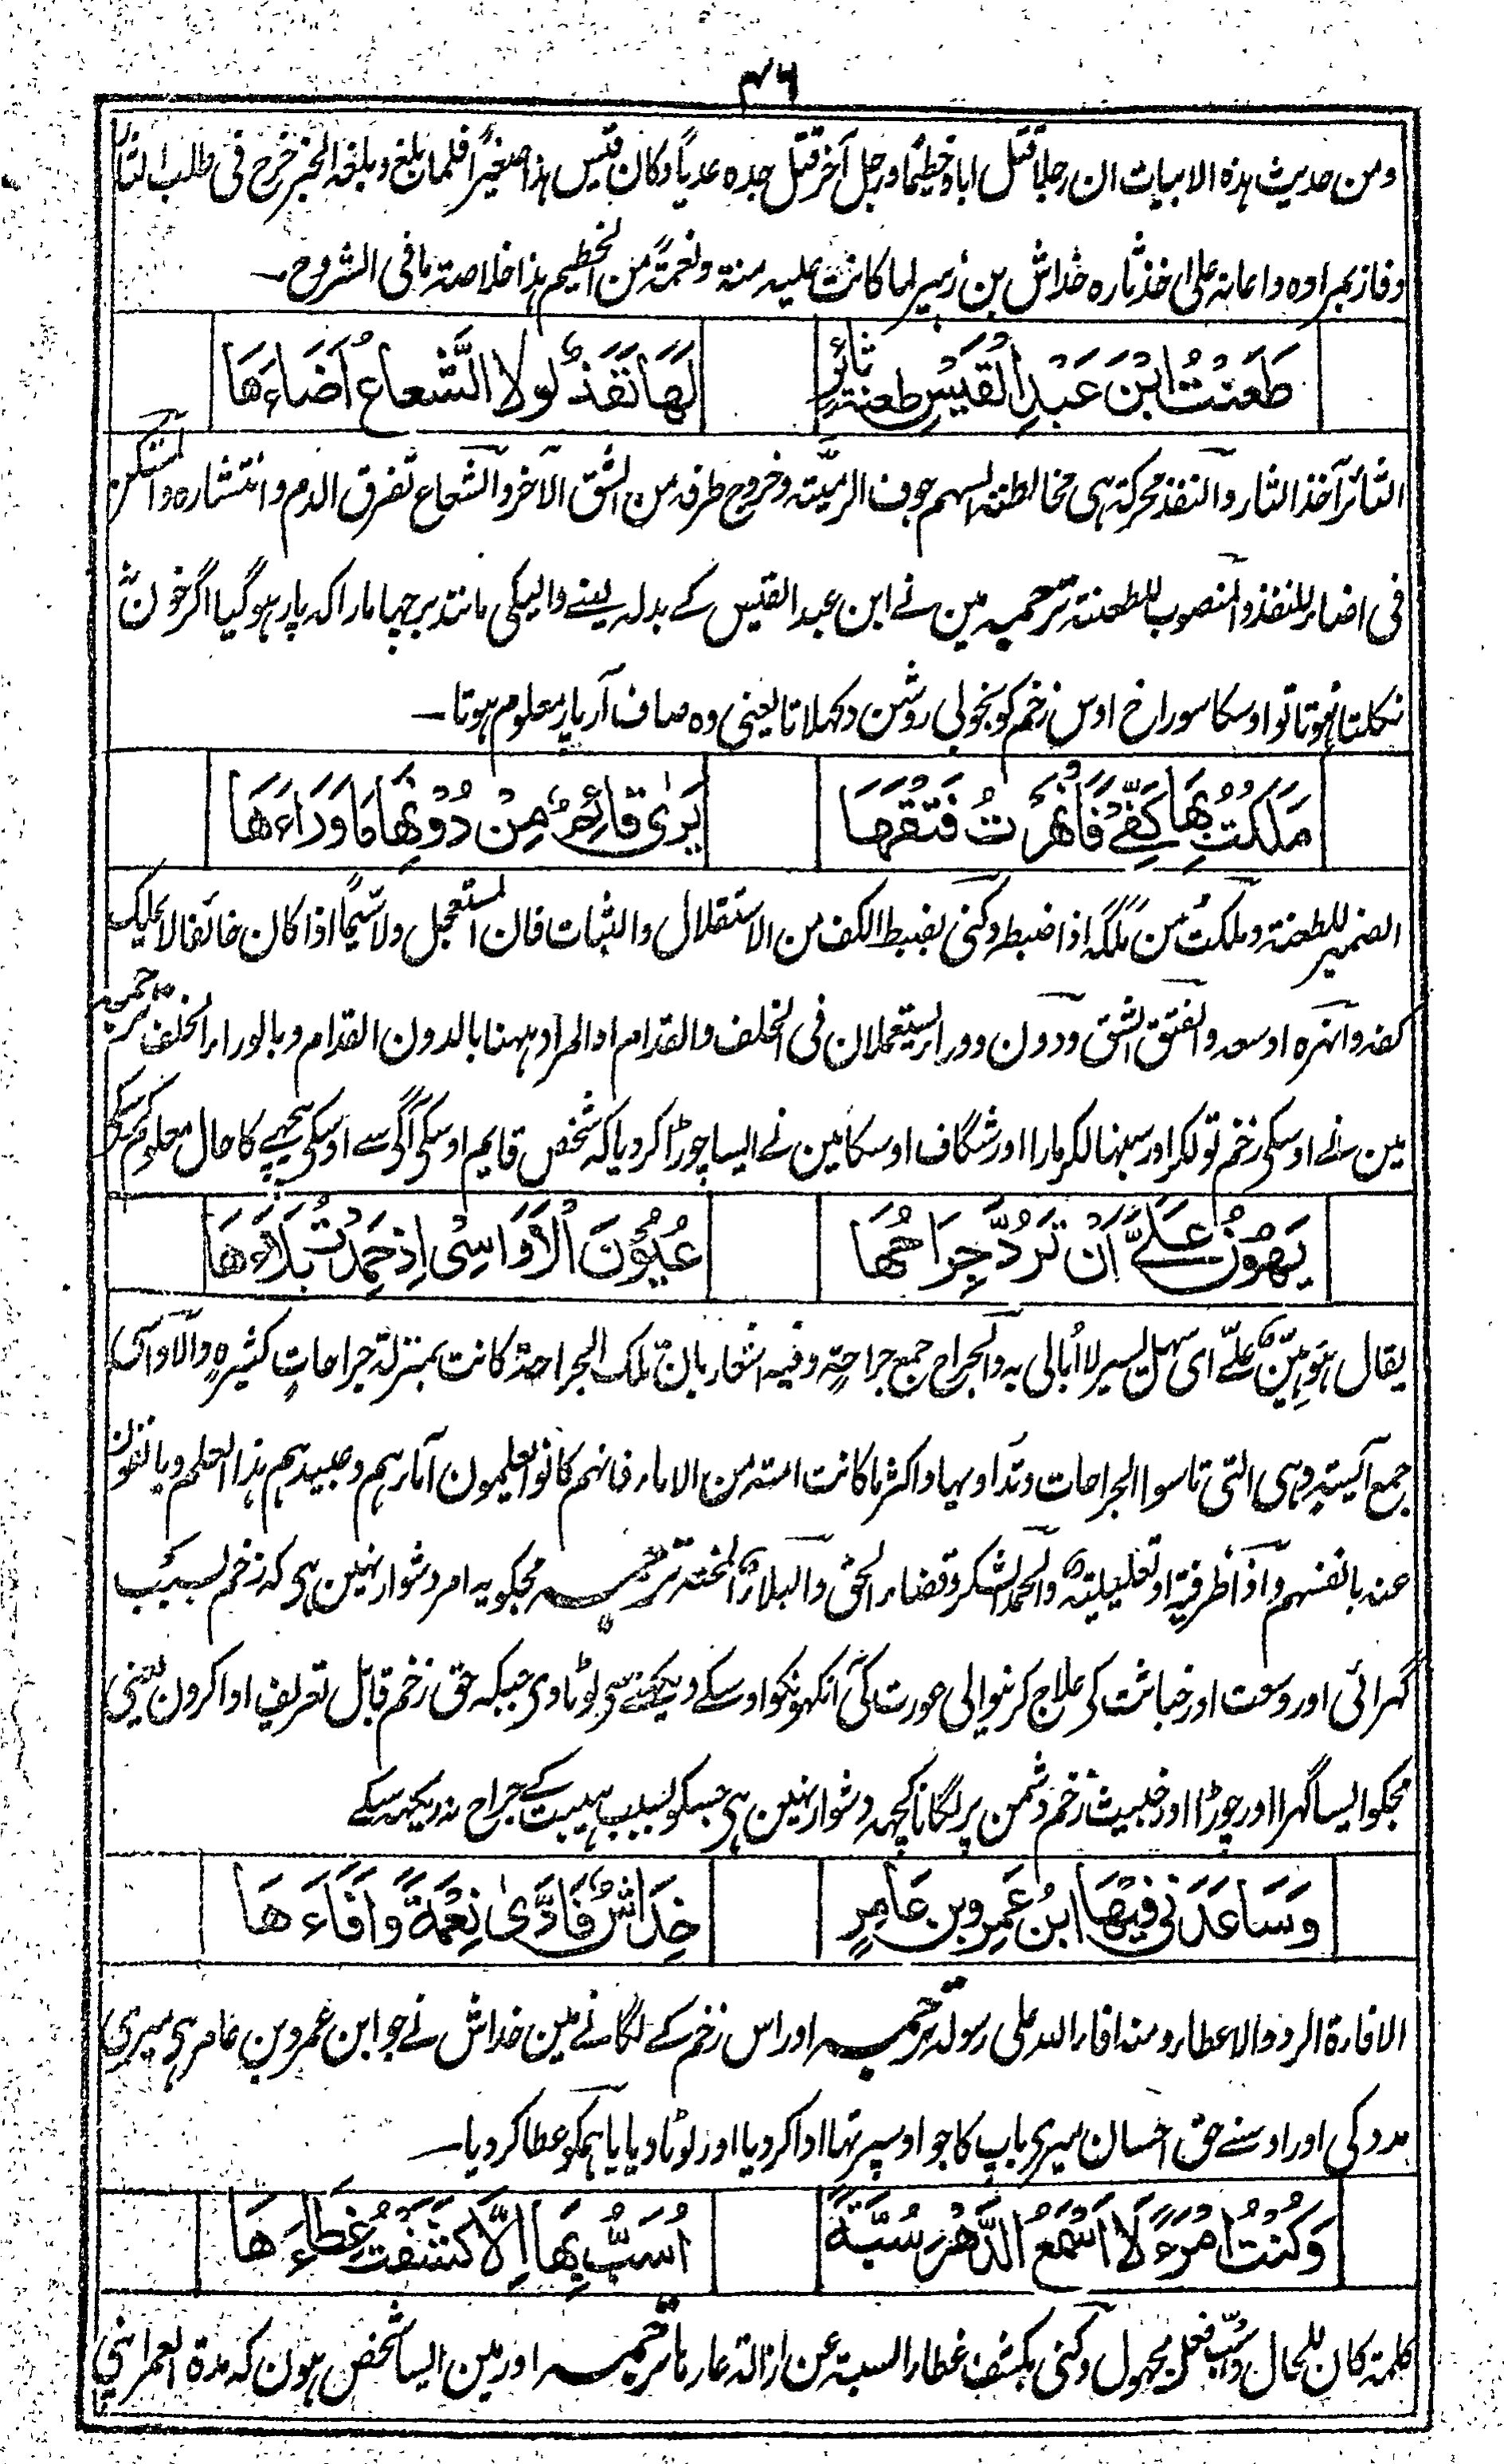 ۴۶
ومن حدیث ہذہ الابیات ان رجلاً قتل اباہ خطیمًا ورجل آخر قتل جدہ عدیاً وکان قیس ہذا صغیرًا فلما بلغ وبلغہ الخبر خرج فی طلب الثار
وفاز بمرادہ واعانہ علی اخذ ثارہ خداش بن زہیر لما کانت علیہ منۃ ونعمۃ من الخطیم ہذا خلاصۃ ما فی الشروح۔
طَعَنْتُ ابْنَ عَبْدِ الْقَيْسِ طعنةَ ثَائِرٍ
لَهَا نَفَذٌ لَولا الشَّعاعُ اَضَاءَهَا
الثائر آخذ الثار والنفذ محرکۃ ہی مخالطۃ السہم جوف الرمیّۃ وخروج طرفہ من الشق الآخر والشعاع تفرق الدم وانتشارہ والمستکن
فی اضاء للنفذ والمنصوب للطعنۃ ترجمہ مین نے ابن عبد القیس کے بدلہ لینے والیکی مانند برچہا مارا کہ پار ہوگیا اگر خون
نکلتا نہوتا تو اوسکا سوراخ اوس زخم کو بخوبی روشن دکہلاتا یعنی وہ صاف آر پار معلوم ہوتا۔
مَلَكْتُ بِهَا كَفِّے فَأَنْهَرْتُ فَتْقَهَا
يَرٰى قَائِمٌ مِنْ دُوْنِهَا مَا وَرَاءَهَا
الضمیر للطعنۃ وملکتُ من مَلَکَہ اذا ضبطہ وکنی بضبط الکف من الاستقلال والثبات فان المستعجل ولا سیّما اذا کان خائفا لا یملک
کفہ وانہرہ اوسعہ والفتق الشق ودون ووراء یستعملان فی الخلف والقدام والمراد ہہنا بالدون القدام وبالوراء الخلف ترجمہ
مین نے اوسکی زخم تولکر اور سنبہالکر مارا اور شگاف اوسکا مین نے ایسا چوڑا کردیا کہ شخص قایم اوسکی آگی سے اوسکی پیچہے کا حال معلوم کرسکی
يَهُوْنُ عَلَيَّ اَنْ تَرُدَّ جِرَاحُهَا
عُيُوْنَ الْاَوَاسِىْ اِذْ حَمِدْتُ بَلَاءَهَا
یقال ہو ہیّن علیّ ای سہل یسیر لا اُبالی بہ والجراح جمع جراحۃ وفیہ اشعار بان تلک الجراحۃ کانت بمنزلۃ جراحات کثیرۃ والاواسی
جمع آسیۃ وہی التی تاسو الجراحات وتداویہا واکثر ما کانت امۃ من الاماء فانہم کانوا یعلمون آماءہم وعبیدہم ہذا العلم ویانفون
عنہ بانفسہم واذ ظرفیۃ او تعلیلیۃ والحمد الشکر وقضاء الحق والبلاء المحنۃ ترجمہ مجکو یہ امر دشوار نہین ہی کہ زخم بسبب
گہرائی اور وسعت اور خباثت کی علاج کرنیوالی عورت کی آنکہونکو اوسکے دیکہنے سی لوٹا دی جبکہ حق زخم قابل تعریف ادا کرون یعنی
مجکو ایسا گہرا اور چوڑا اور خبیث زخم دشمن پر لگانا کچہہ دشوار نہین ہی جسکو بسبب ہیبت کے جراح نہ دیکہہ سکے
وَسَاعَدَنِى فِيْهَا ابْنُ عَمْرِو بن عَامِرٍ
خِدَاشٌ فَاَدّٰى نِعْمَةً وَاَفَاءَهَا
الافاءۃ الرد والاعطاء ومنہ افاء اللہ علی رسولہ ترجمہ اور اس زخم کے لگانے مین خداش نے جو ابن عمرو بن عامر ہی میری
مدد کی اور اوسنے حق احسان میری باپ کا جو اوسپر تہا ادا کردیا اور لوٹا دیا یا ہمکو عطا کردیا۔
وَكُنْتُ امْرَءً لَا اَسْمَعُ الدَّهْرَ سُبَّةً
اُسَبُّ بِهَا اِلَّا كَشَفْتُ غِطَاءَهَا
کلمۃ کان للحال واُسبّ فعل مجہول وکنی بکشف غطاء السبۃ عن ازالۃ عارہا ترجمہ اور مین ایسا شخص ہون کہ مدۃ العمر اپنی